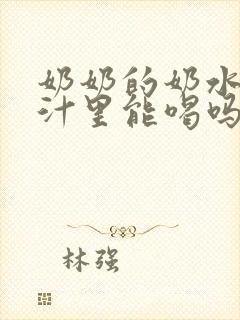 奶奶的奶水
汁里能喝吗
林强